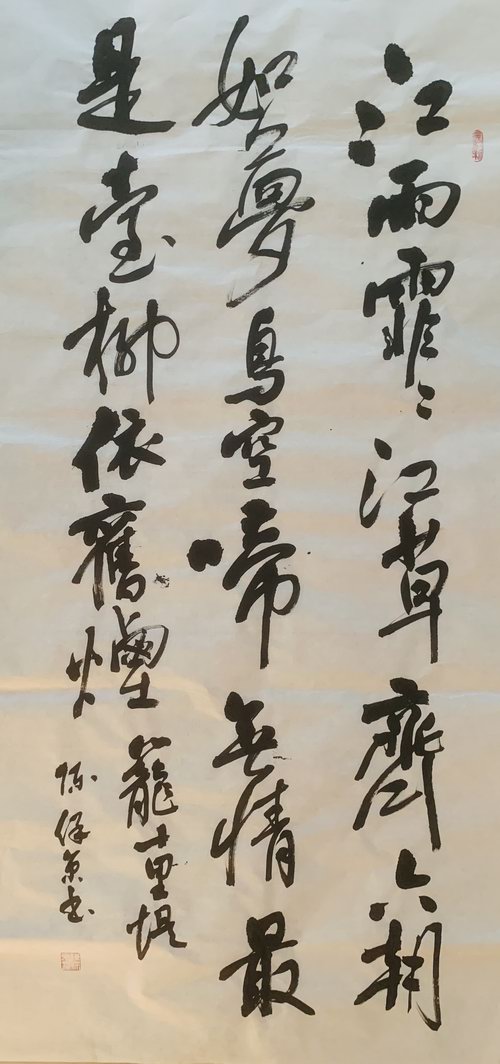 江雨霏〻江草齊六朝
如夢鳥空啼無情最
是臺柳依舊煙
籠十里堤
陈书